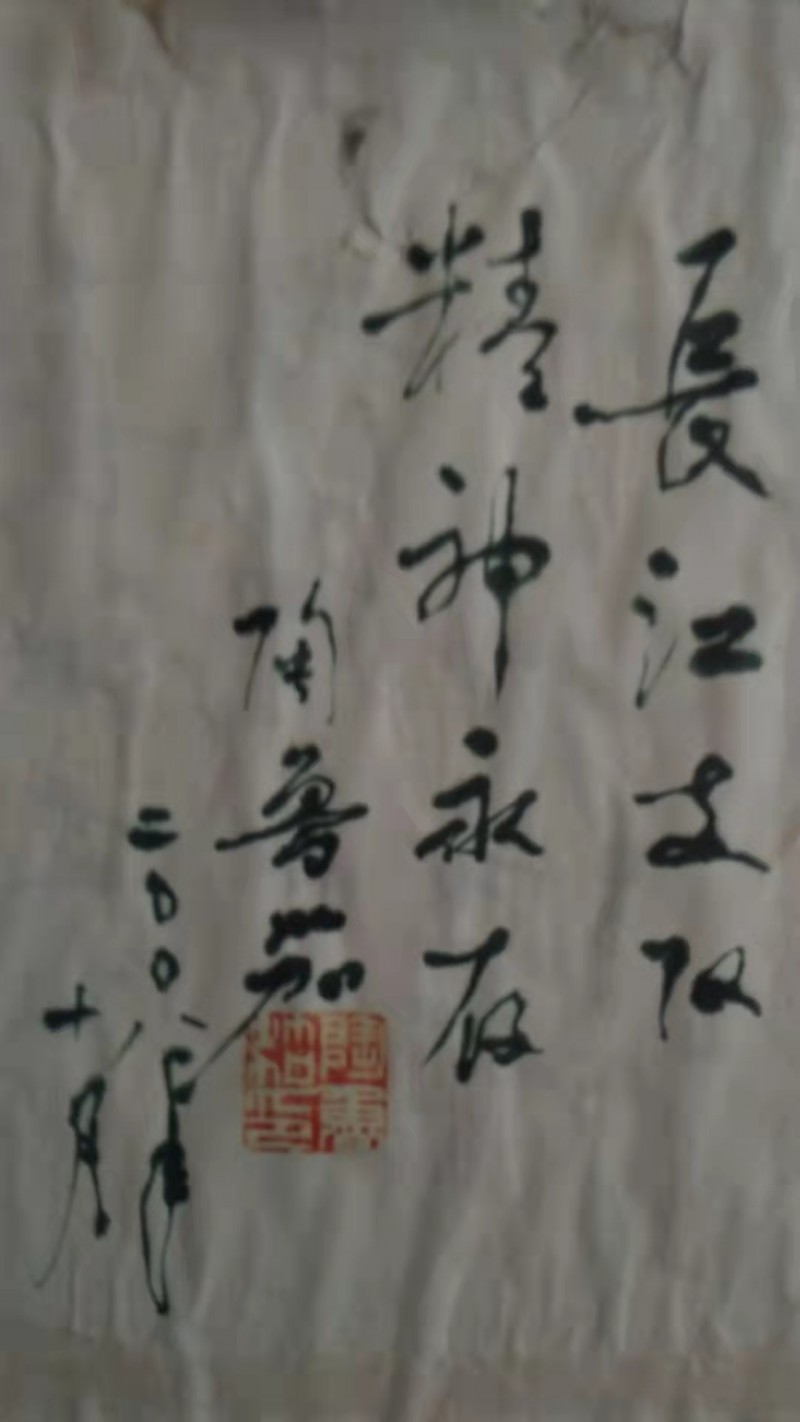 長江支队
精神永存
陶鲁笳
二00八年
十月